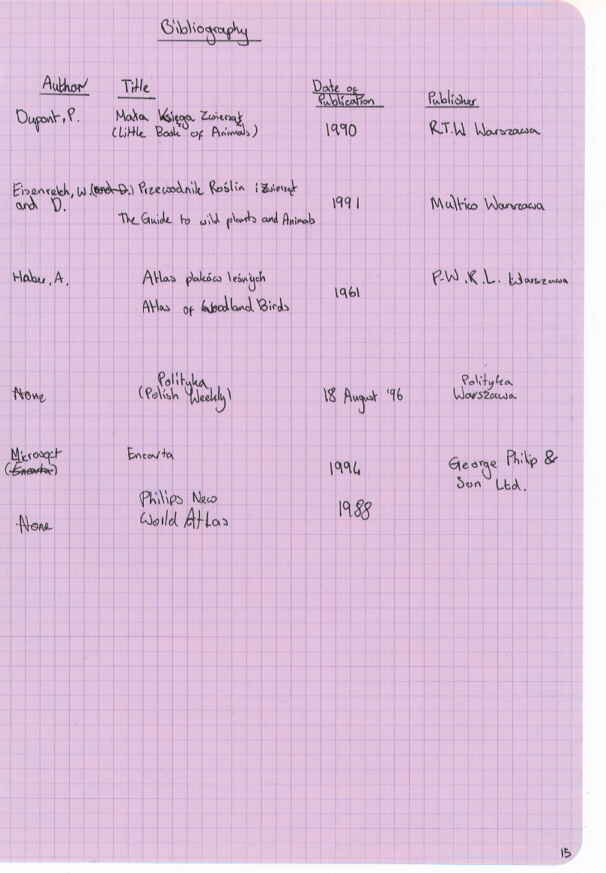 Bibliography
Author Title Date of Publication Publisher
Dupont, P. Mała Księga Zwierząt 1990 R.T.W Warszawa
(Little Book of Animals)
Eisenreich, W. (and D.) Przewodnik Roślin i Zwierząt 1991 Multico Warszawa
and D.
The Guide to wild plants and Animals
Haber, A. Atlas ptaków leśnych 1961 P.W.R.L. Warszawa
Atlas of Woodland Birds
None Polityka 18 August '96 Polityka
(Polish Weekly) Warszawa
Microsoft Encarta 1994 George Philip &
(Encarta) Son Ltd.
None Philips New 1988
World Atlas
15